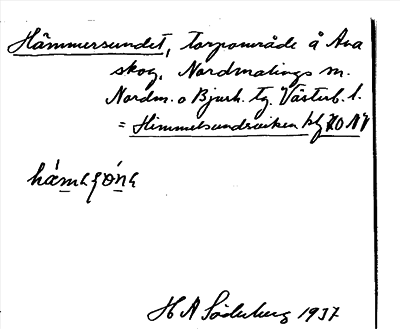 Hämmersundet, torpområde å Ava
skog, Nordmalings sn.
Nordm. o Bjurh. tg. Västerb. l.
= Himmelsundsviken
H A Söderberg 1937